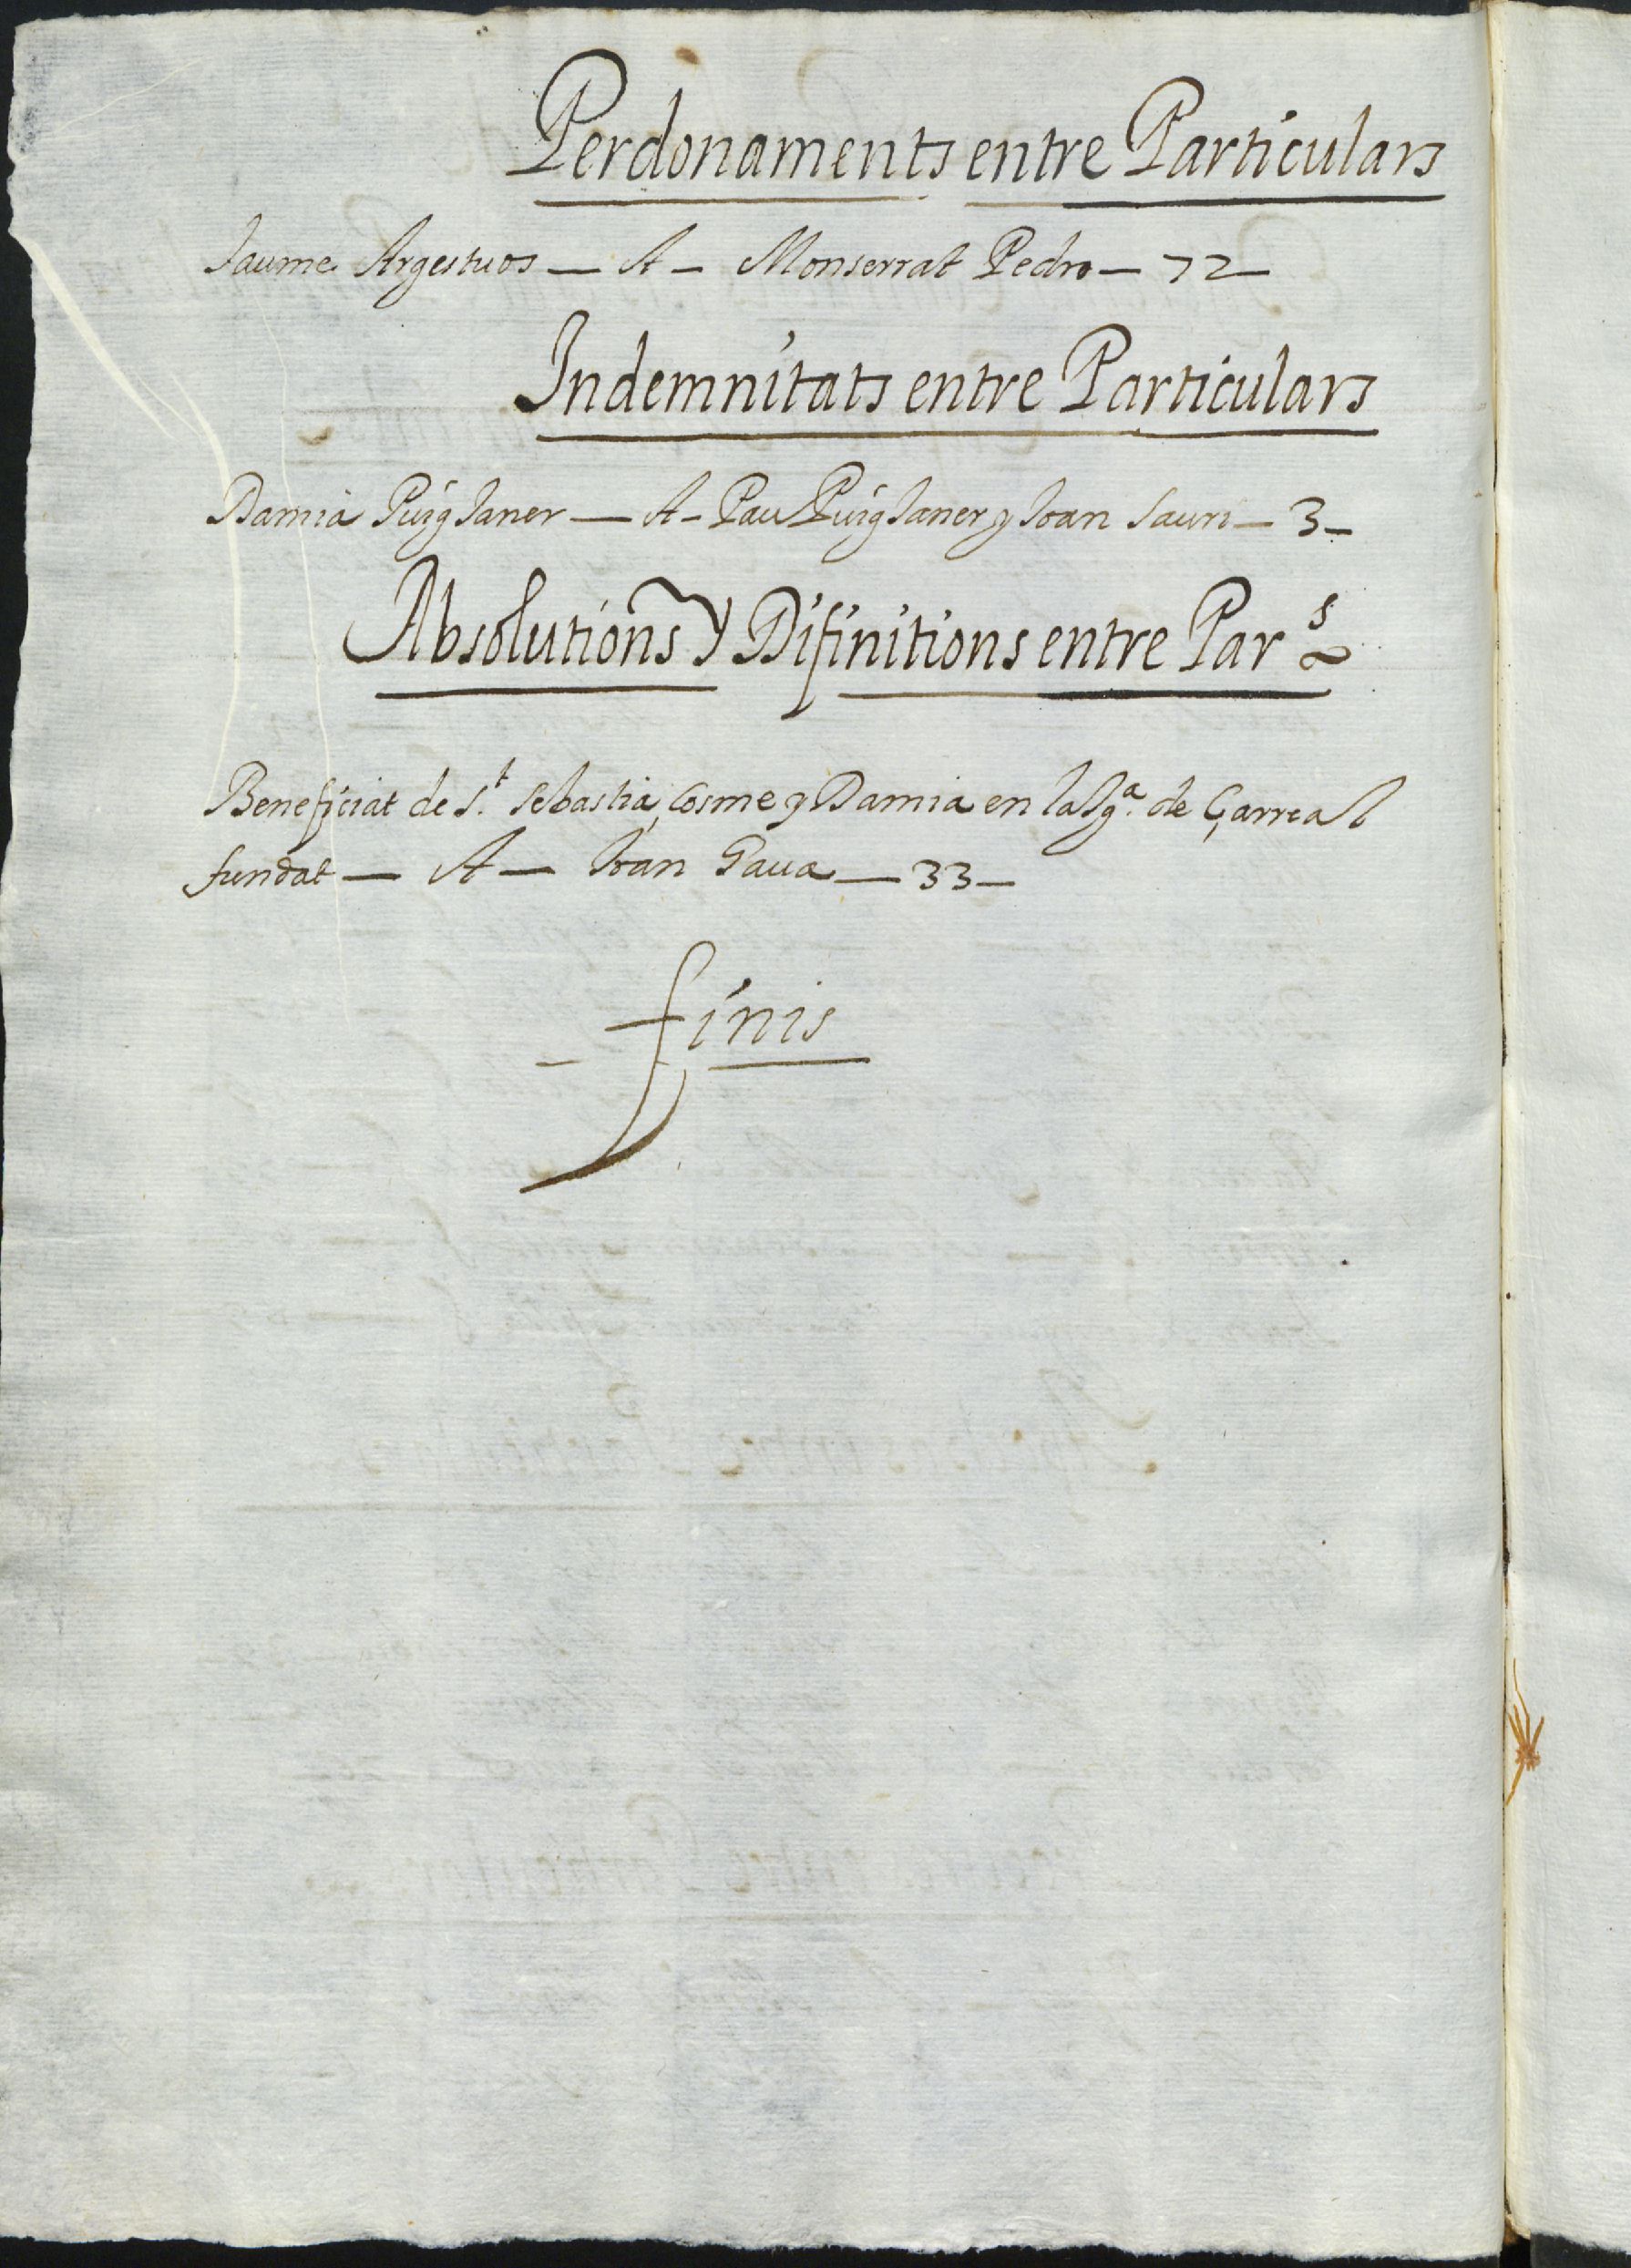 Perdonaments entre Particulars
Jaume Argestuos — A — Monserrat Pedro — 72
Indemnitats entre Particulars
Damia Puig Janer — A — Pau Puig Janer y Joan Sauri — 3 —
Absolutions y Difinitions entre Par.s
Beneficiat de S.t Sebastia, Cosme y Damia en la Jg.a de Çarreal
fundat — A — Joan Gaua — 33 —
finis